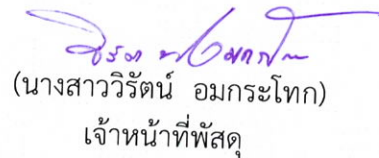 (นางสาววิรัตน์ อมกระโทก)
เจ้าหน้าที่พัสดุ